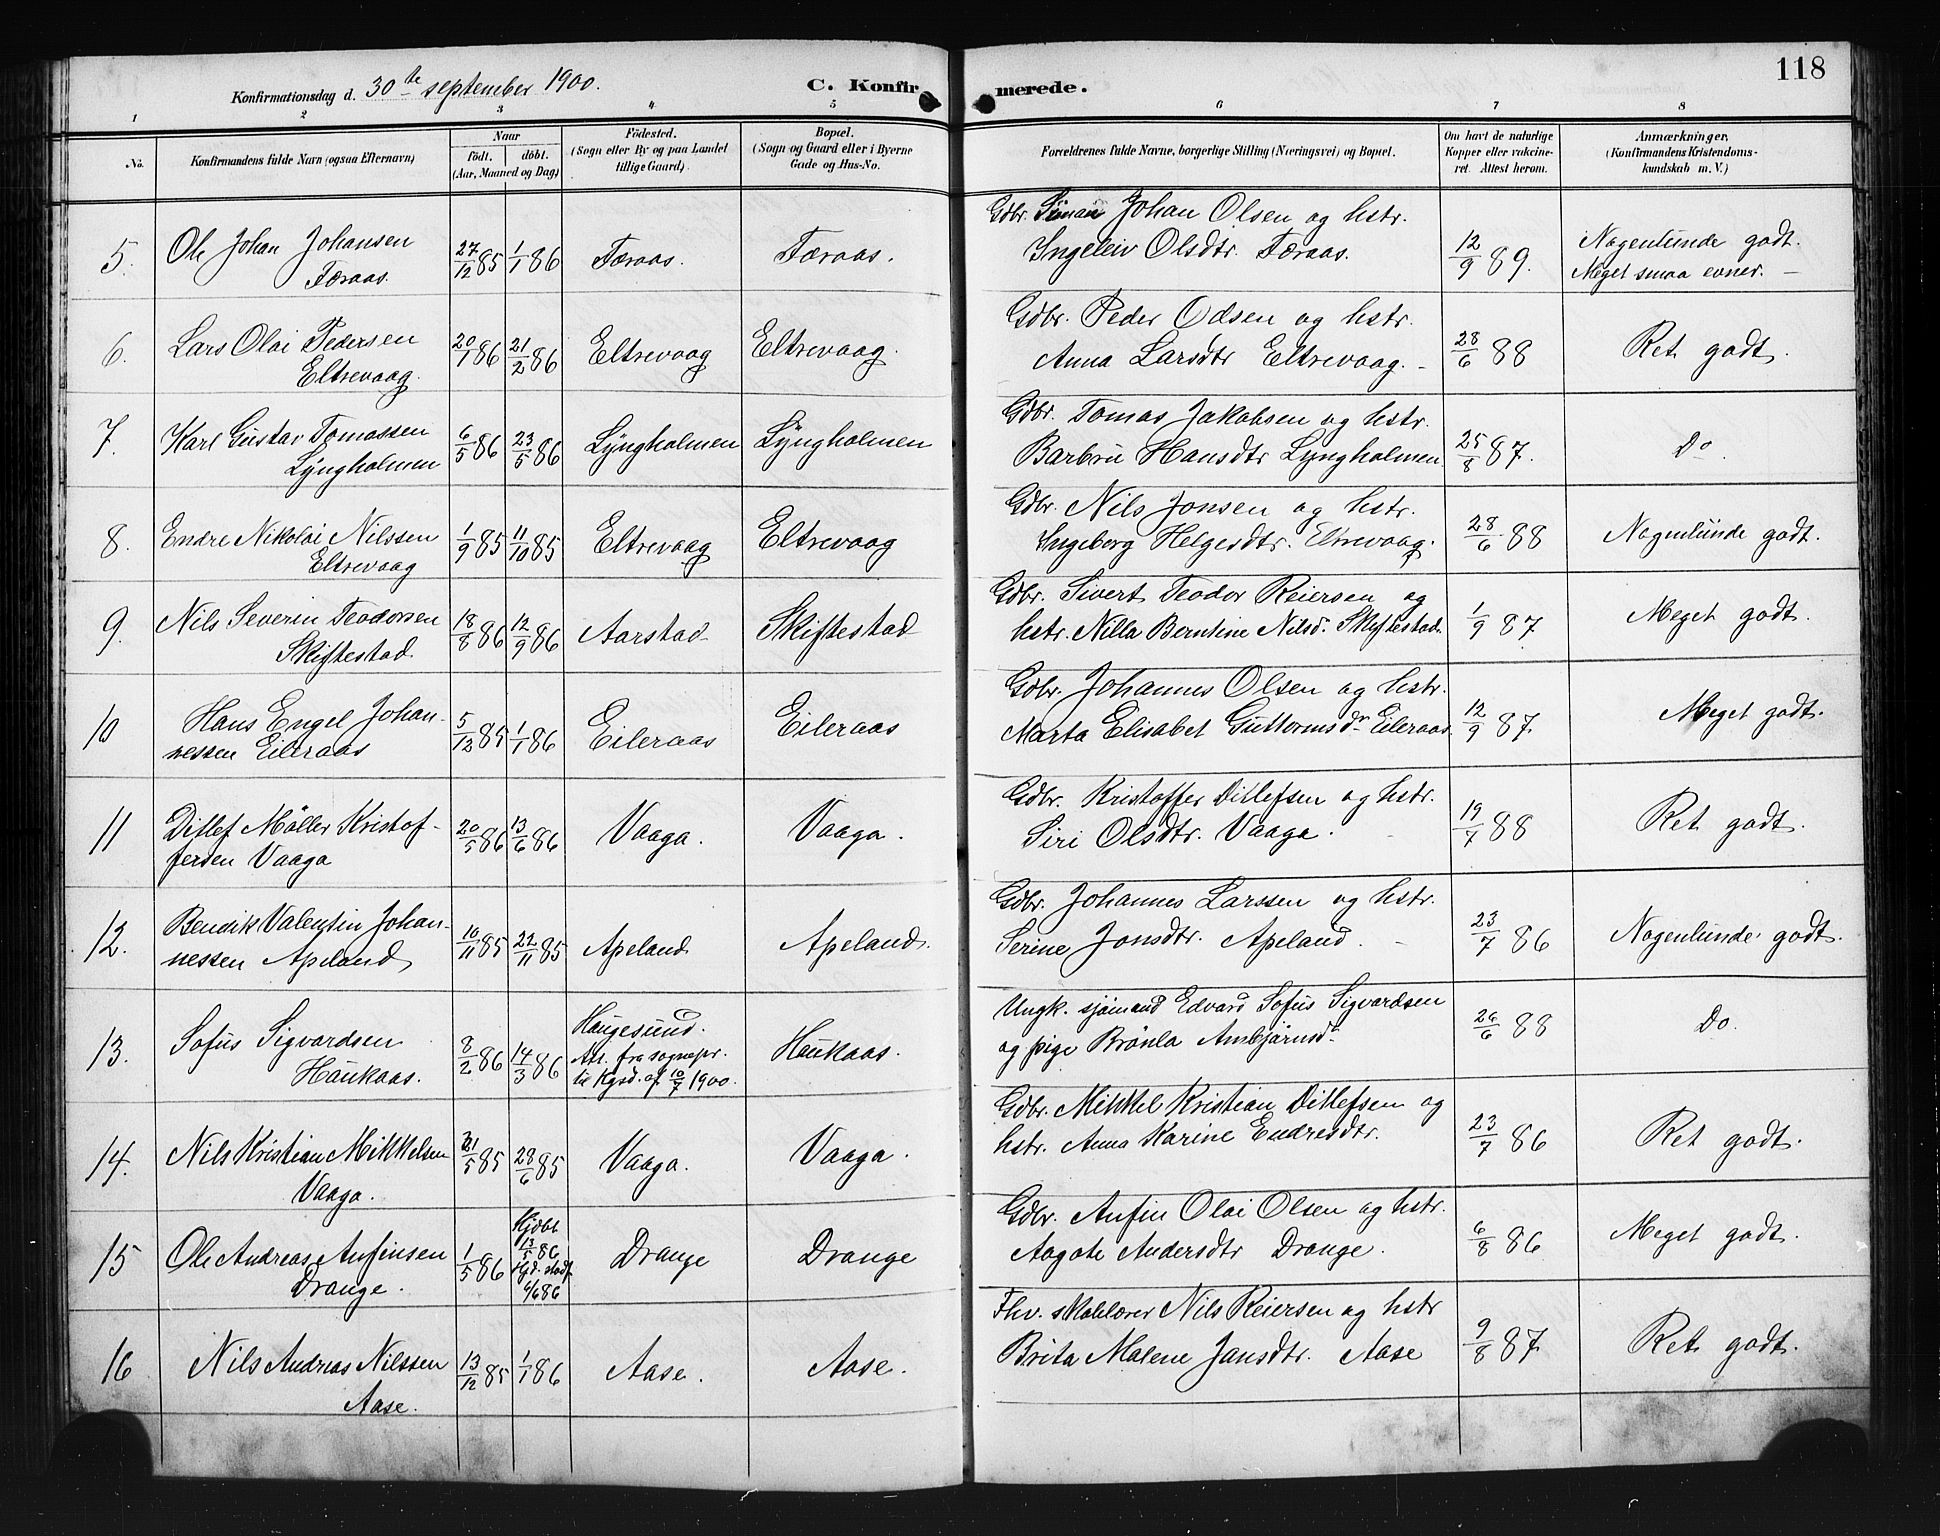 118
Konfirmationsdag d. 30te september 1900.
C. Konfirmerede.
1 2 3 4 5 6 7 8
No.
Konfirmandens fulde Navn (ogsaa Efternavn)
Naar
født. døbt.
(Aar, Maaned og Dag)
Fødested.
(Sogn eller By og paa Landet
tillige Gaard).
Bopæl.
(Sogn og Gaard eller i Byerne
Gade og Hus-No.
Forældrenes fulde Navne, borgerlige Stilling (Næringsvei) og Bopæl.
Om havt de naturlige
Kopper eller vakcine-
ret. Attest herom.
Anmærkninger.
(Konfirmandens Kristendoms-
kundskab m. V.)
5. Ole Johan Johansen
Færaas.
27/12 85 1/1 86 Færaas. Færaas.
Gdbr. Simon Johan Olsen og hstr.
Ingeleiv Olsdtr. Færaas.
12/9 89.
Nogenlunde godt.
Meget smaa evner. –
6. Lars Olai Pedersen
Eltrevaag.
20/1 86 21/2 86 Eltrevaag Eltrevaag.
Gdbr. Peder Odsen og hstr.
Anna Larsdtr Eltrevaag. –
28/6 88
Ret godt.
7. Karl Gustav Tomassen
Lyngholmen
6/5 86 23/5 86 Lyngholmen Lyngholmen
Gdbr. Tomas Jakobsen og hstr.
Barbru Hansdtr Lyngholmen
25/8 87.
Do.
8. Endre Nikolai Nilssen
Eltrevaag
1/9 85 11/10 85 Eltrevaag Eltrevaag
Gdbr. Nils Jonsen og hstr.
Ingeborg Helgesdtr. Eltrevaag.
28/6 88
Nogenlunde godt.
9. Nils Severin Teodorsen
Skiftestad.
18/8 86 12/9 86 Aarstad Skiftestad
Gdbr. Sivert Teodor Reiersen og
hstr. Nilla Berntine Nilsd. Skiftestad.
1/9 87
Meget godt.
10 Hans Engel Johan-
nessen Eileraas
5/12 85 1/1 86 Eileraas Eileraas
Gdbr. Johannes Olsen og hstr.
Marta Elisabet Guttormsdr Eileraas.
12/9 87.
Meget godt.
11 Ditlef Møller Kristof-
fersen Vaaga
20/5 86 13/6 86 Vaaga. Vaaga.
Gdbr. Kristoffer Ditlefsen og hstr.
Siri Olsdtr. Vaaga.
19/7 88
Ret godt.
12. Bendik Valentin Johan-
nessen Apeland
10/11 85 22/11 85 Apeland Apeland.
Gdbr. Johannes Larssen og hstr.
Serine Jonsdtr. Apeland. –
23/7 86
Nogenlunde godt.
13. Sofus Sigvardsen
Haukaas.
8/2 86 14/3 86
Haugesund.
Att. fra sognepr.
til Kgsd. af 10/7 1900.
Haukaas.
Ungk. sjømand Edvard Sofus Sigvardsen
og pige Brønla Ambjørnsd.
26/6 88
Do.
14. Nils Kristian Mikkelsen
Vaaga.
21/5 85 28/6 85 Vaaga. Vaaga.
Gdbr. Mikkel Kristian Ditlefsen og
hstr. Anna Karine Endresdtr.
23/7 86
Ret godt.
15 Ole Andreas Anfinsen
Drange.
1/5 86
Hjdbt
13/5 86
stadf.
6/6 86
Drange Drange
Gdbr. Anfin Olai Olsen og hstr.
Aagote Andersdtr Drange.
6/8 86
Meget godt.
16 Nils Andreas Nilssen
Aase.
13/12 85 1/1 86 Aase. Aase.
Fhv. skolelærer Nils Reiersen og hstr
Brita Malene Jansdtr. Aase
9/8 87
Ret godt.